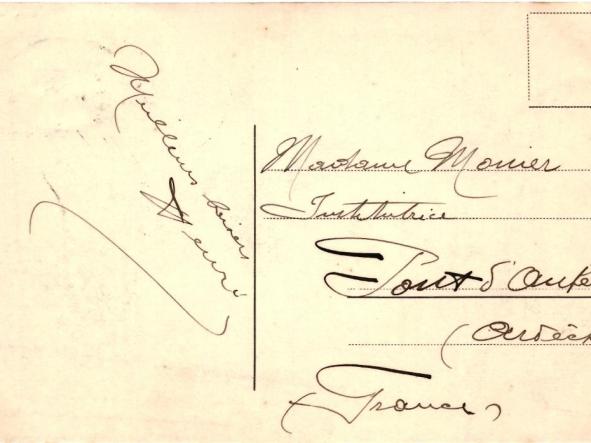 Meilleurs baisers
Henri
Madame Monier
Institutrice
Pont d'
France